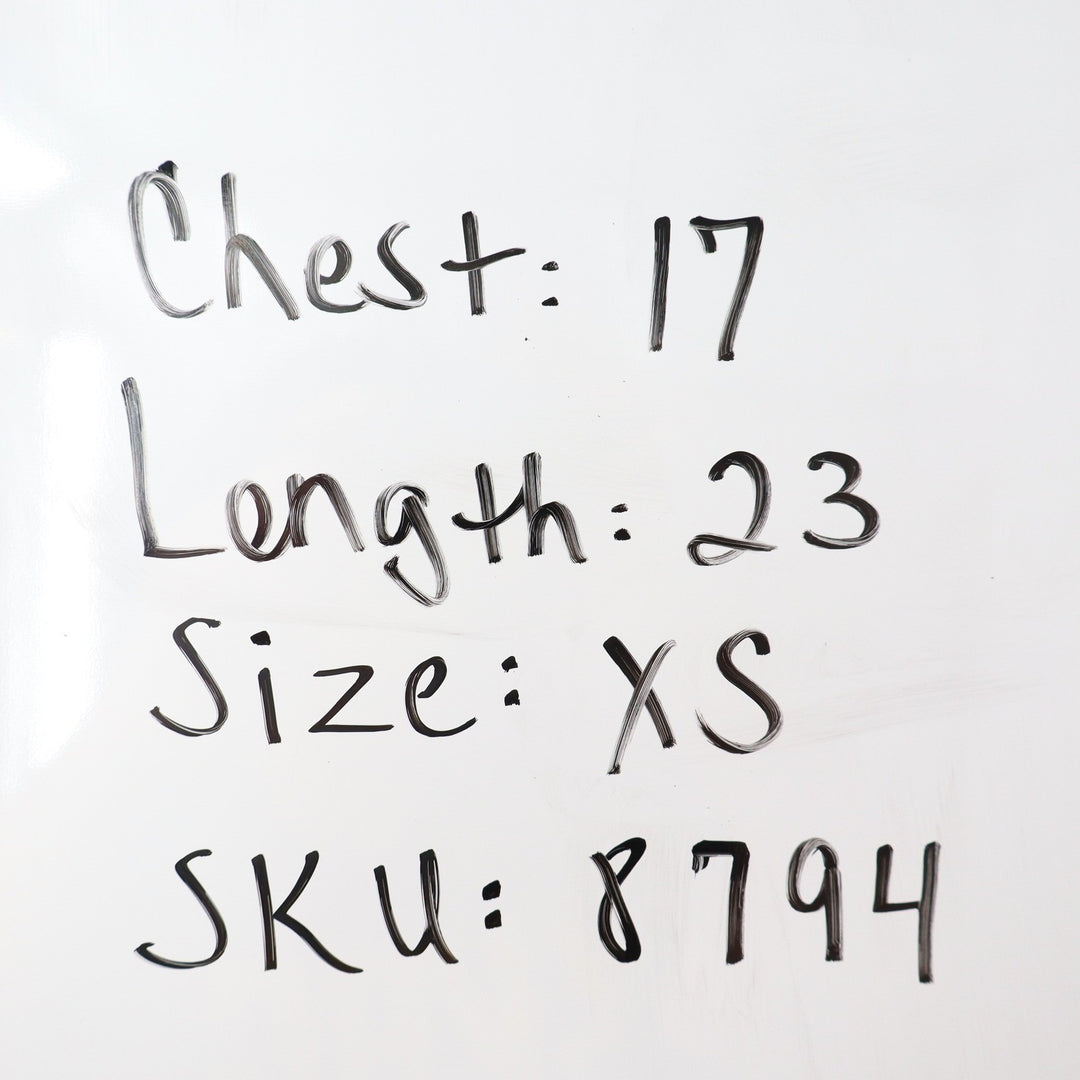 Chest: 17
Length: 23
Size: XS
SKU: 8794